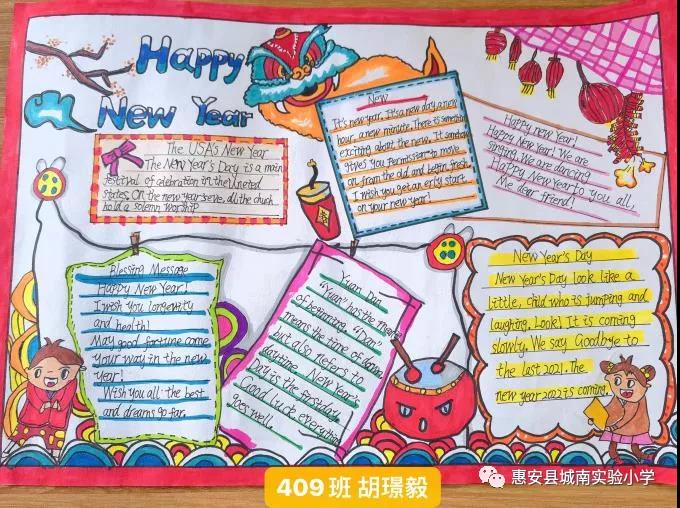 Happy
New Year
The USA's New Year
The New Year's Day is a main
festival of celebration in the United
States. On the new year's eve, all the church
hold a solemn worship
New
It's new year. It's a new day, a new
hour, a new minute. There is something
exciting about the new. It somehow
gives you permission to move
on from the old and begin fresh
I wish you get an erly start
on your new year!
Happy new Year!
Happy New Year! We are
singing. We are dancing
Happy New Year to you all,
Me dear friend!
Blessing Message
Happy New Year!
I wish you longevity
and health!
May good fortune come
your way in the new
year!
Wish you all the best
and dreams go far.
Yuan Dan
"Yuan" has the
of beginning. "Dan"
means the time of dawn
but also refers to
daytime. New Year's
Day is the first day.
Good luck, everything
goes well.
New Year's Day
New Year's Day look like a
little, child who is jumping and
laughing. Look! It is coming
slowly. We say Goodbye to
the last 2021. The
new year 2022 is coming.
惠安县城南实验小学
409班 胡璟毅